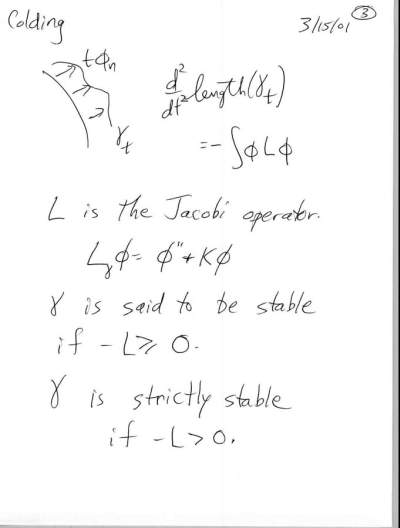 Colding 3/15/01 ③
tϕn
γ_t
d²/dt² length(γ_t)
= - ∫ϕLϕ
L is the Jacobi operator.
L_γϕ = ϕ'' + Kϕ
γ is said to be stable
if - L ≥ 0.
γ is strictly stable
if - L > 0.